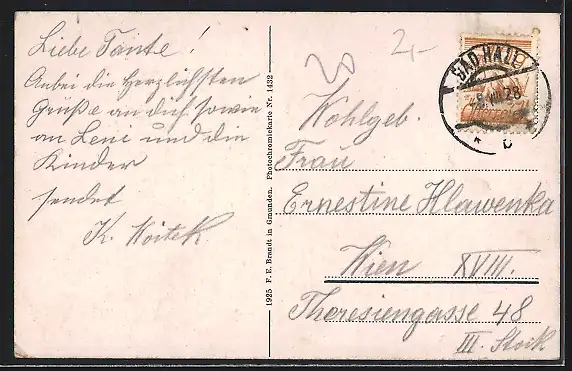 Liebe Tante!
Anbei die herzlichsten
Grüße an dich sowie
an Leni und die
Kinder
sendet
K. Woitek
1925 F. E. Brandt in Gmunden. Photochromiekarte Nr. 1432
2,-
BAD HALL
28
Wohlgeb.
Frau
Ernestine Hlawenka
Wien XVIII.
Theresiengasse 48
III. Stock